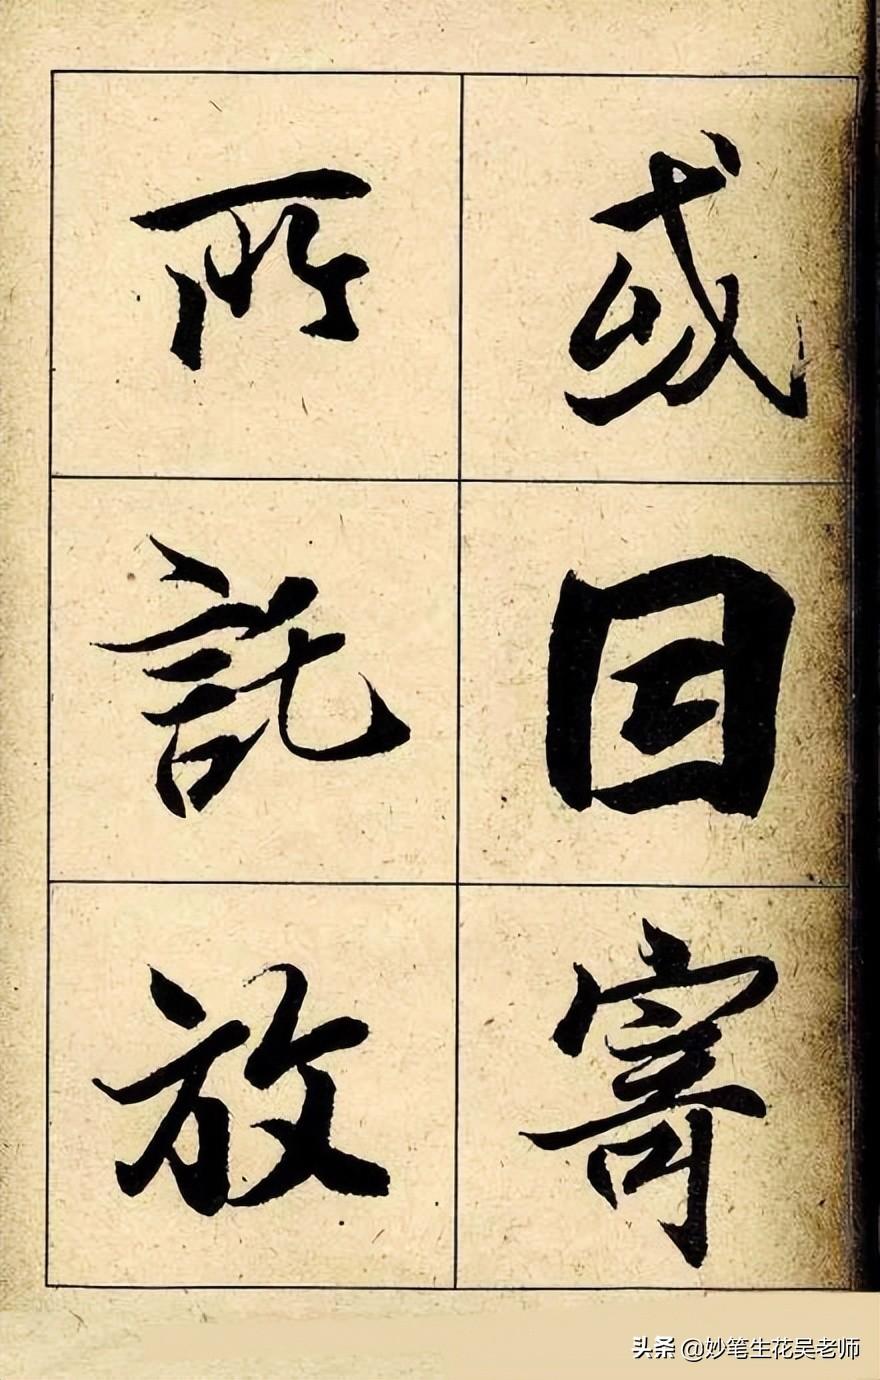 或因寄
所託放
头条 @妙笔生花吴老师